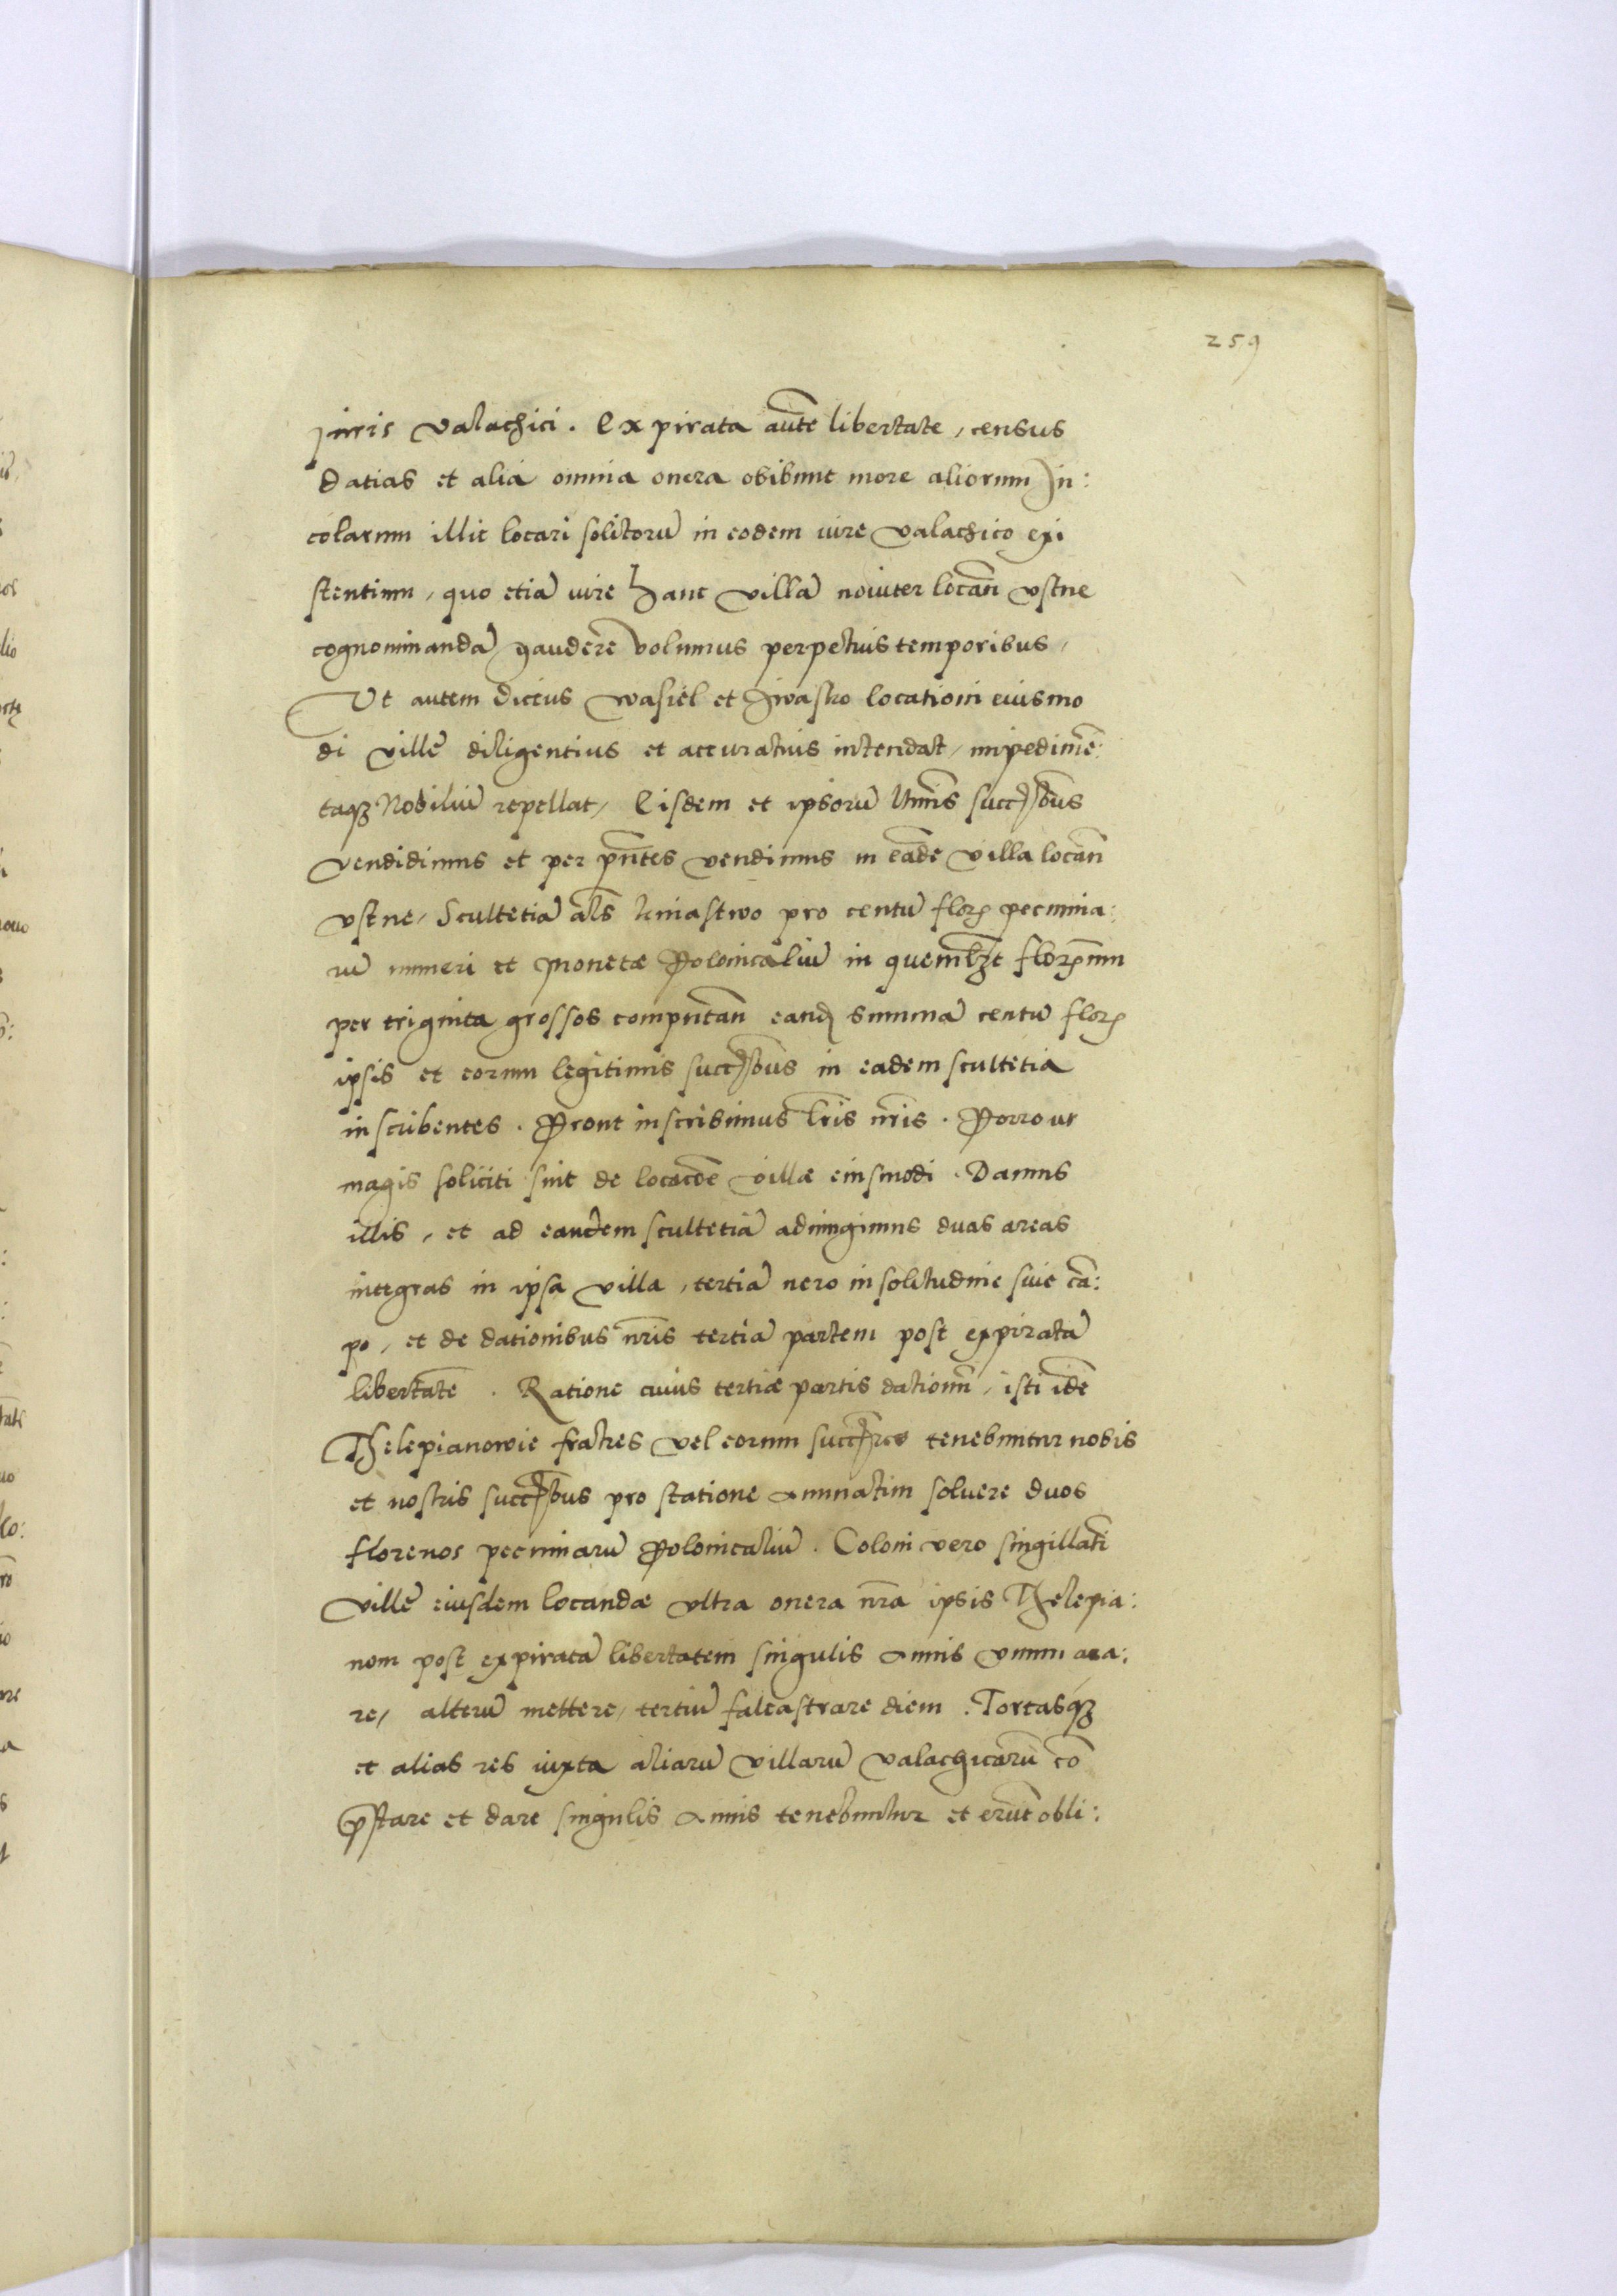 259
Juris valachici. Expirata aut̄e libertate, census
datias et alia omnia onera obibunt more aliorum In:
colarum illic locari solitorū in eodem iure valachico exi
stentium, quo etiā iure hanc villā noviter locan̄ Vstne
cognominandā gaudere volumus perpetuis temporibus,
Ut autem dictus Wasiel et Iwasko locationi eiusmo
di villę diligentius et accuratius intendat, impedimē:
taqȝ Nobiliū repellat, Eisdem et ipsorū ltimis succ̄ssobus
vendidimus et per pn̄tes vendimus in eadē villa locan̄
Vstne, Scultetiā al̄s kniastwo pro centū flor̄ pecunia:
rū numeri et monetæ Polonicaliū in quemlȝt flor̄enum
per triginta grossos computan̄ eand̄ summā centū flor̄
ipsis et eorum legitimis succ̄ssobus in eadem scultetia
inscribentes. Prout inscribimus lr̄is nr̄is. Porro ut
magis soliciti sint de locac̄oe villæ eiusmodi. Damus
illis, et ad eandem scultetiā adiungimus duas areas
integras in ipsa villa, tertiā vero in solitudine sive cā:
po, et de dationibus nr̄is tertiā partem post expiratā
libertatē. Ratione cuius tertiæ partis dationū, isti idē
Thelepianowie fratres vel eorum succ̄ssores tenebuntur nobis
et nostris succ̄ssobus pro statione annuatim solvere duos
florenos pecuniarū Polonicaliū. Coloni vero singillatī
villę eiusdem locandæ ultra onera nr̄a ipsis Thelepia:
nom post expiratā libertatem singulis annis unum ara:
re, alterū mettere, tertiū falcastrare diem. Tortasqȝ
et alias res iuxta aliarū villarū valachicarū cō
p̄stare et dare singulis annis tenebuntur et erūt obli: